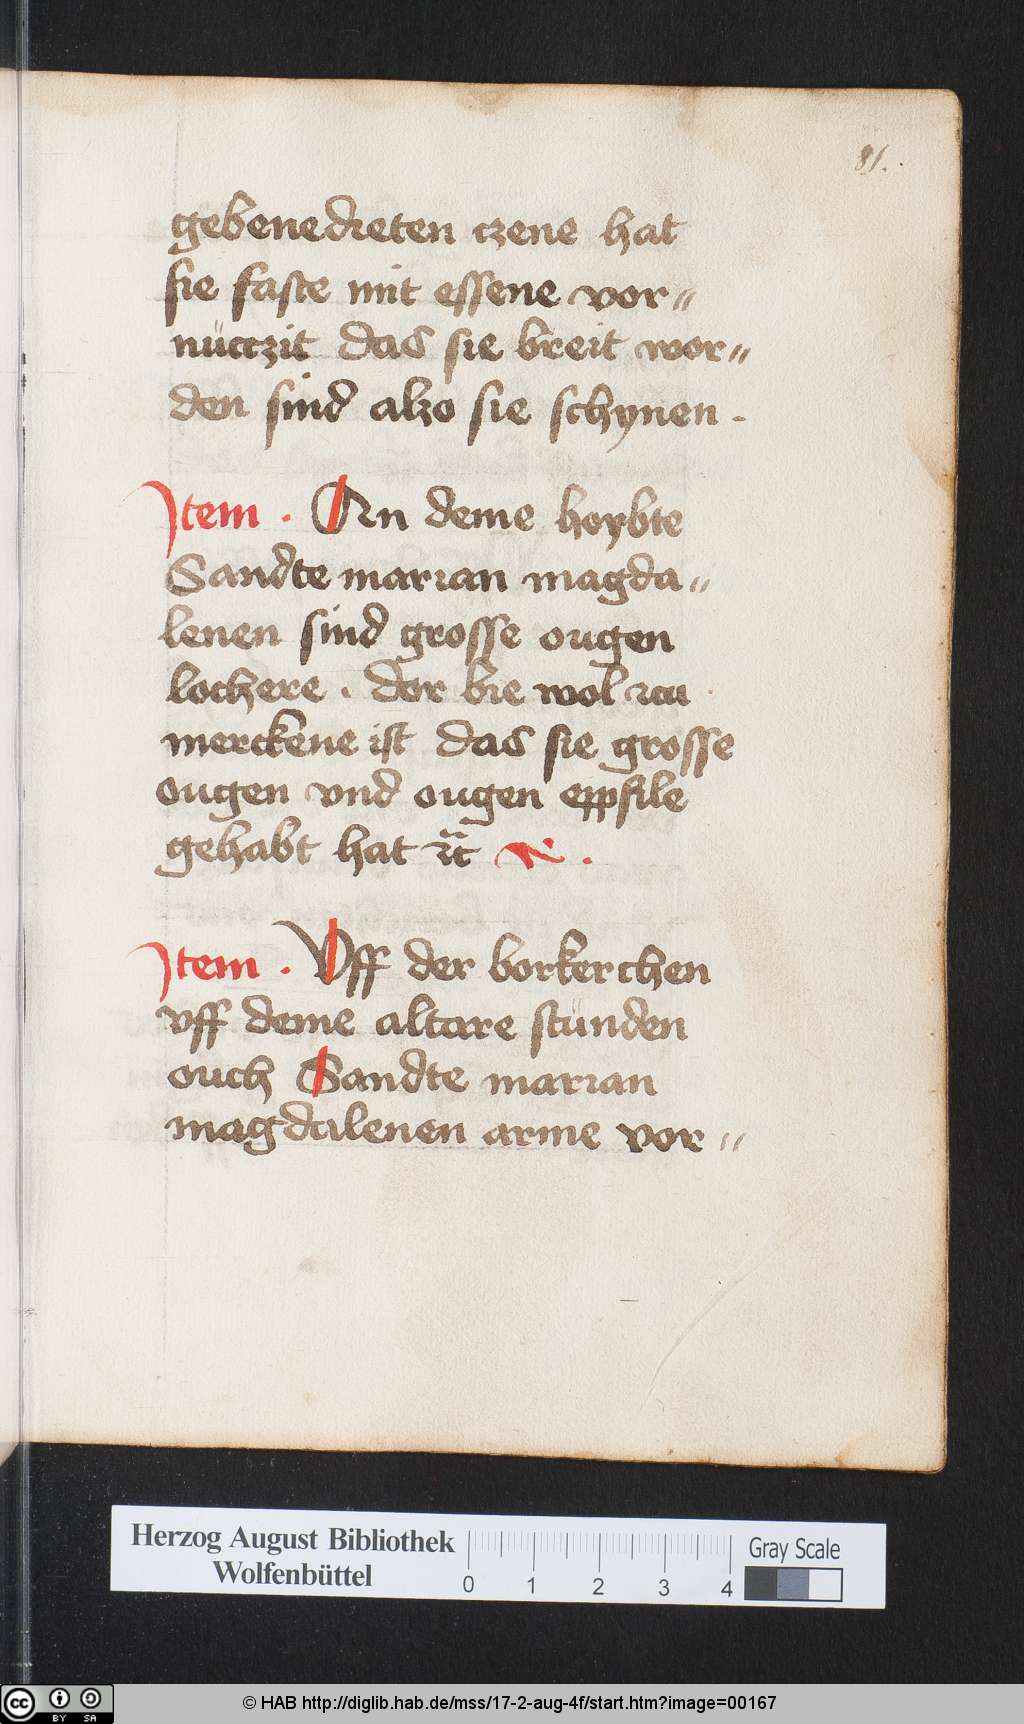 81.
gebenedieten czene hat
sie faste mit essene vor〃
nücczit das sie breit wor〃
den sind alzo sie schynen .
Item . An deme hoybte
Sandte marian magda〃
lenen sind grosse ougen
lochere . dor bie wol czu
merckene ist das sie grosse
ougen vnd ougen eppfile
gehabt hat ꝛc̃
Item . Vff der borkerchen
vff deme altare stünden
ouch Sandte marian
magdalenen arme vor〃
Herzog August Bibliothek
Wolfenbüttel
0 1 2 3 4
Gray Scale
cc BY SA
© HAB http://diglib.hab.de/mss/17-2-aug-4f/start.htm?image=00167